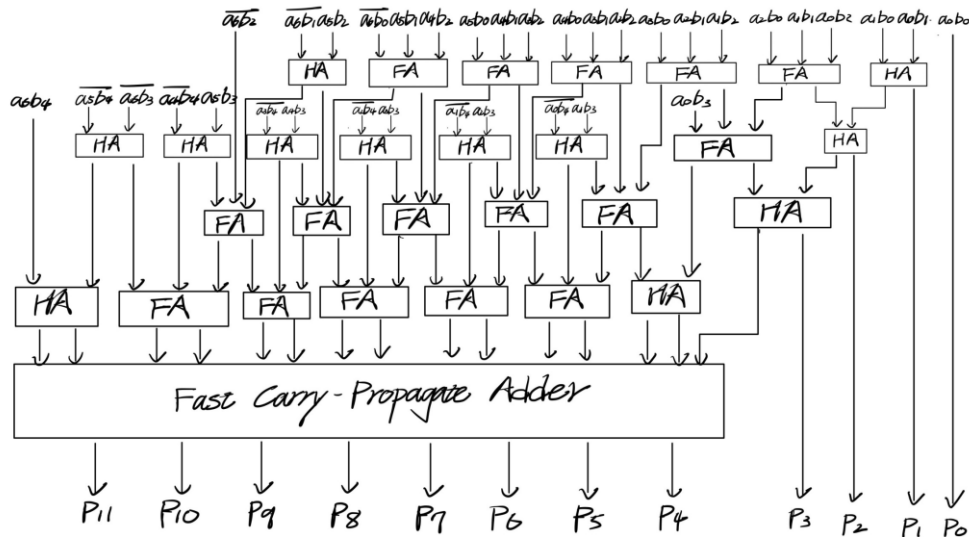 a̅6̅b̅2̅ a̅6̅b̅1̅ a5b2 a̅6̅b̅0̅ a5b1 a4b2 a5b0 a4b1 a3b2 a4b0 a3b1 a2b2 a3b0 a2b1 a1b2 a2b0 a1b1 a0b2 a1b0 a0b1 a0b0
HA FA FA FA FA FA HA
a6b4 a̅5̅b̅4̅ a̅6̅b̅3̅ a̅4̅b̅4̅ a5b3 a̅3̅b̅4̅ a4b3 a̅2̅b̅4̅ a3b3 a̅1̅b̅4̅ a2b3 a̅0̅b̅4̅ a1b3 a0b3
HA HA HA HA HA HA FA HA
FA FA FA FA FA HA
HA FA FA FA FA FA HA
Fast Carry-Propagate Adder
P11 P10 P9 P8 P7 P6 P5 P4 P3 P2 P1 P0